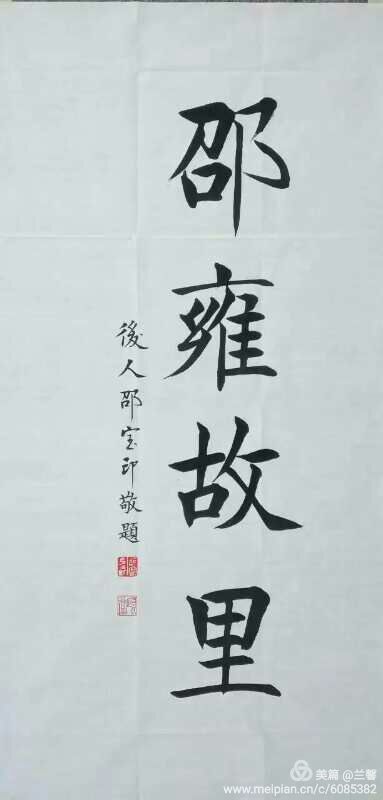 邵雍故里
後人邵宝印敬題
美篇 @兰馨
www.meipian.cn/c/6085382